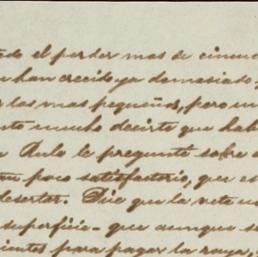 do el perder mas de cincu
han crecido ya demasiado,
las mas pequeños, pero un
to mucho decirte que hab
Aulo le pregunté sobre
un poco satisfactorio, que es
desertar. Dice que la veta
superficie - que aunque se
cientos para pagar la raya,